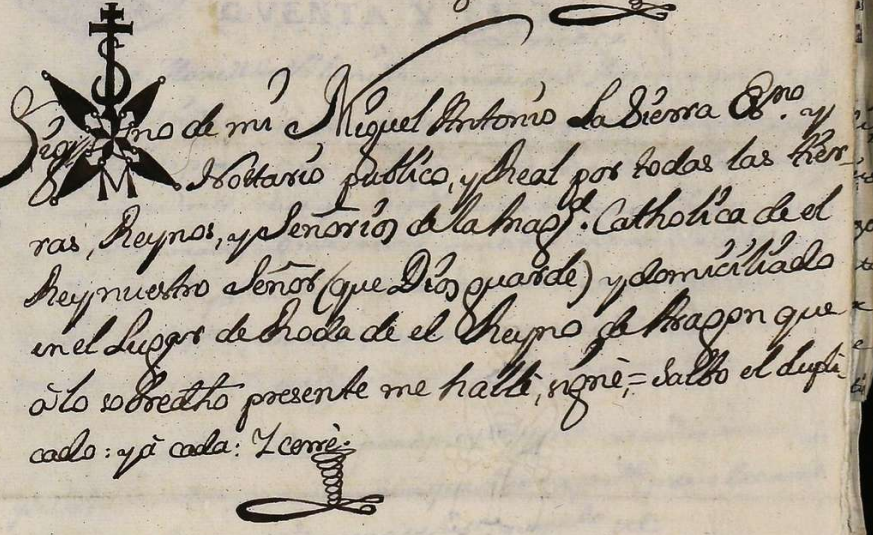 Sig no de mi Miguel Antonio La Sierra Es.no y
Nottario publico, y Real por todas las tier_
ras, Reynos, y Señorios de la Mag.d Catholica de el
Rey nuestro Señor (que Dios guarde) y domiciliado
en el Lugar de Roda de el Reyno de Aragon que
à lo sobredho presente me hallè, signè,= Salbo el dupli_
cado: y à cada: Y cerrè.